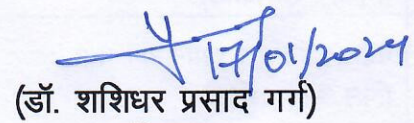 17/01/2024
(डॉ. शशिधर प्रसाद गर्ग)